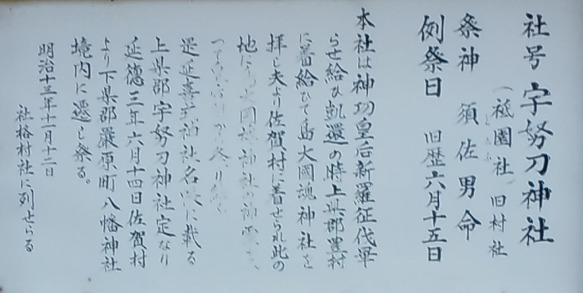 社号 宇努刀神社
(祗園社 旧村社
祭神 須佐男命
例祭日 旧歴六月十五日
本社は神功皇后新羅征伐畢
らせ給ひ凱還の時上県郡豊村
に着給ひて島大國魂神社を
拝し夫より佐賀村に着せられ此の
地に 大國魂神社 神霊
つて
是延喜式神社名帳に載る
上県郡宇努刀神社定なり
延徳三年六月十四日佐賀村
より下県郡嚴原町八幡神社
境内に遷し祭る。
明治十三年十一月十二日
社格村社に列せらる